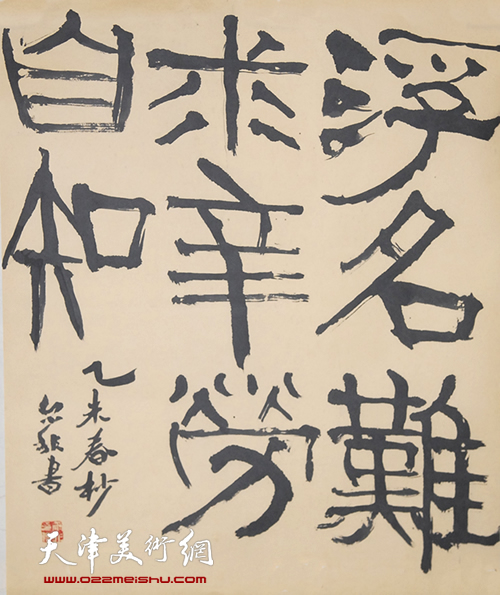 浮名難
求辛勞
自知
乙未春杪
書
天津美術網
www.022meishu.com